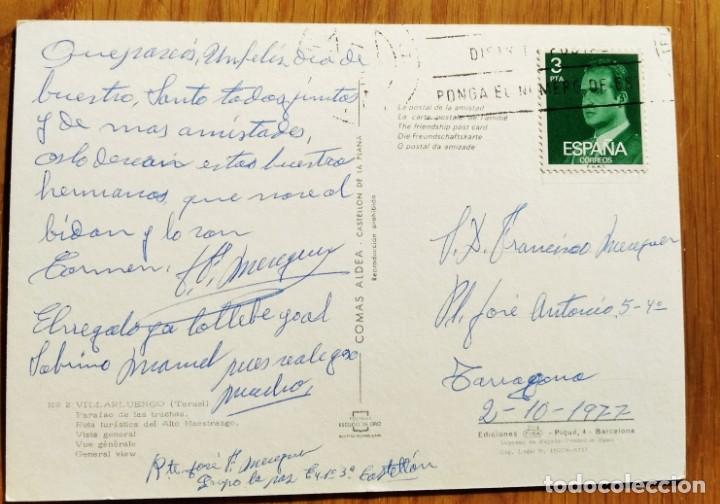 Que paseis, Un feliz dia de
buestro, Santo todos juntos
y de mas amistades,
os lo desean estos buestro
hermanos, que nos el
bidan y lo son
Carmen, J. P. Meneguer
El regalo ya lo llebe yo al
Sobrino Manuel pues se alegro
mucho
Nº 2 VILLARLUENGO (Teruel)
Paraíso de las truchas.
Ruta turística del Alto Maestrazgo.
Vista general
Vue générale
General view
Rte José P. Meneguer
Grupo la paz 3º Castellón
COMAS ALDEA - CASTELLON DE LA PLANA
Reproducción prohibida
PONGA EL NUMERO DE
La postal de la amistad
La carte postale de l'amitié
The friendship post card
Die Freundschaftskarte
O postal da amizade
3
PTA
ESPAÑA
CORREOS
S. D. Francisco Meneguer
Pl. José Antonio, 5-4º
Tarragona
2-10-1977
Ediciones - Piqué, 4 - Barcelona
todocoleccion